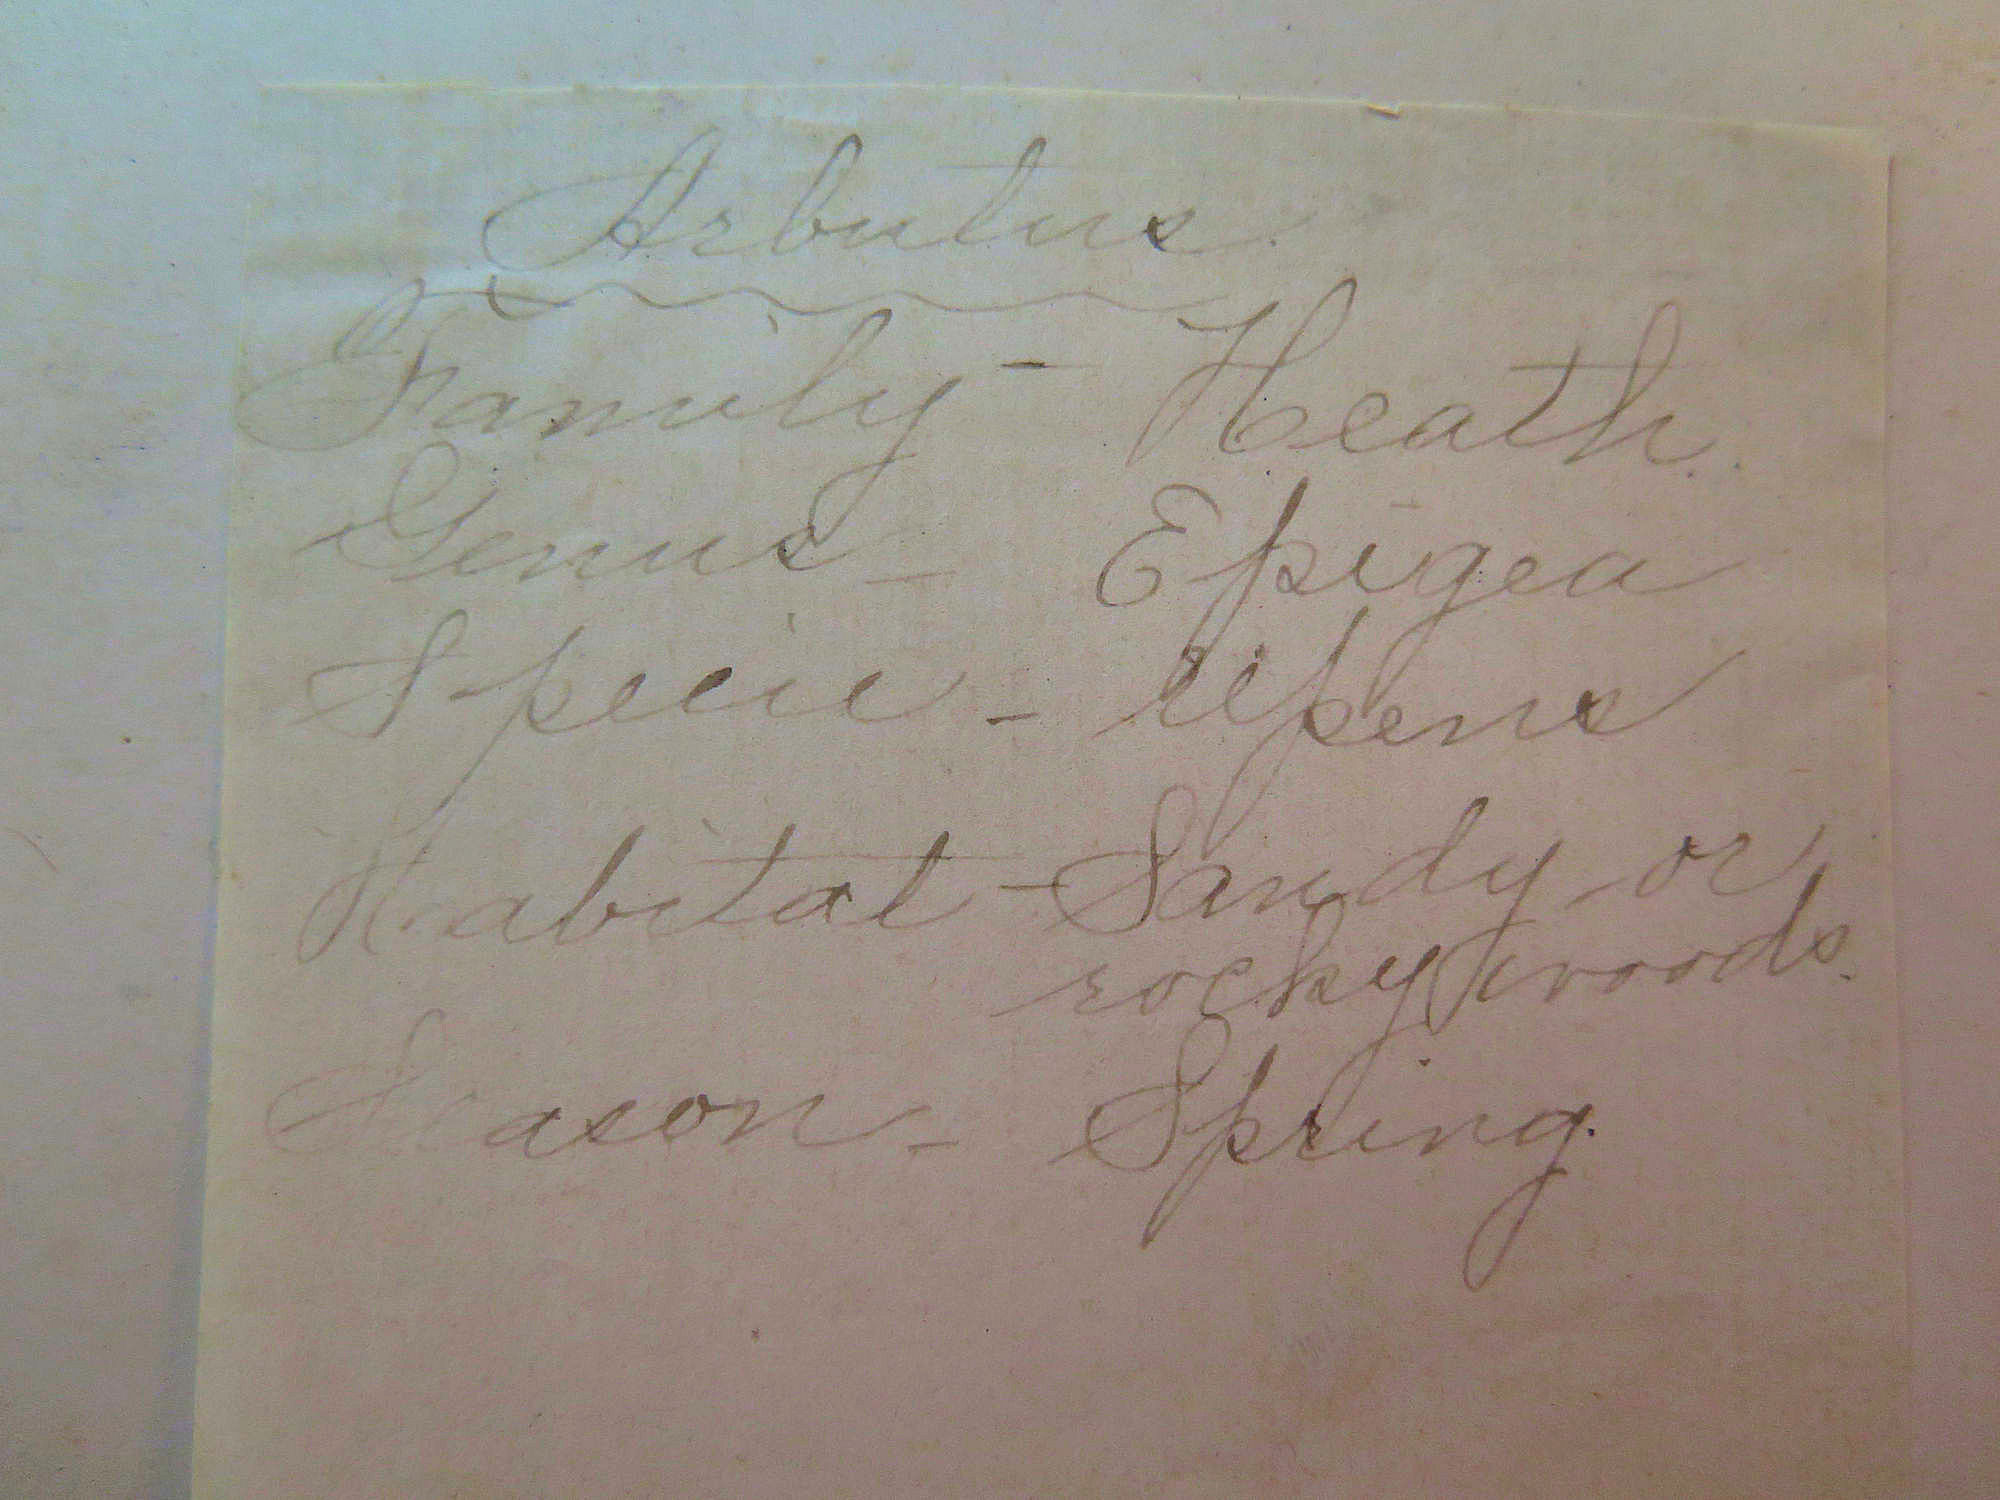 Arbutus.
Family - Heath.
Genus - Epigea
Specie - repens
Habitat - Sandy or
rocky woods.
Season - Spring.